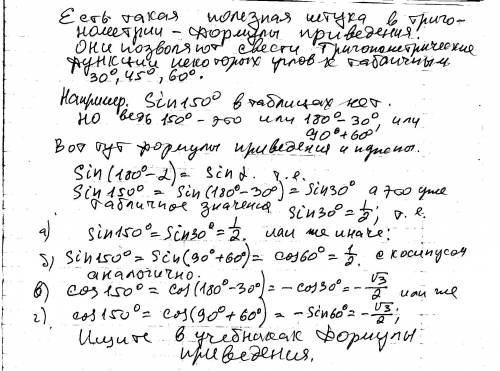 Есть такая полезная штука в триго-
нометрии - формулы приведения!
Они позволяют свести тригонометрические
функции некоторых углов к табличным
30°, 45°, 60°.
Например. Sin150° в таблицах нет.
Но ведь 150° - это или 180°-30°, или
90°+60°
Вот тут формулы приведения и нужны.
Sin(180°-α)= Sinα. т.е.
Sin150° = Sin(180°-30°)= Sin30° а это уже
табличное значение Sin30°=1/2, т.е.
а) Sin150°=Sin30°=1/2. или же иначе:
б) Sin150°= Sin(90°+60°)= cos60°=1/2. с косинусом
аналогично.
в) cos150°=cos(180°-30°)=-cos30°=-√3/2 или же
г) cos150°=cos(90°+60°)=-Sin60°=-√3/2;
Ищите в учебниках формулы
приведения.